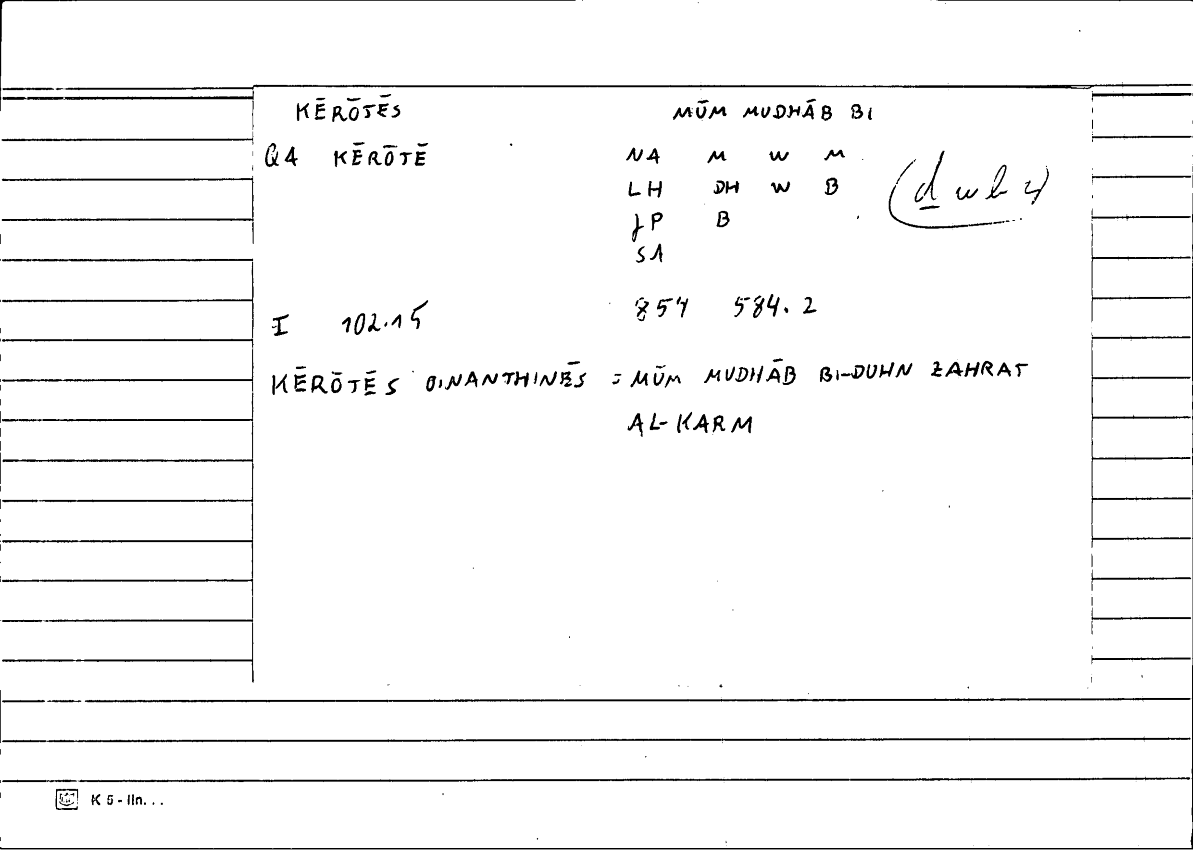 KĒRŌTĒS MŪM MUDHĀB BI
Q4 KĒRŌTĒ NA M W M
LH DH W B (ḏwb 4)
JP B
SA
I 102.15 857 584.2
KĒRŌTĒS OINANTHINĒS = MŪM MUDHĀB BI-DUHN ZAHRAT
AL-KARM
K 5 - lln. . .